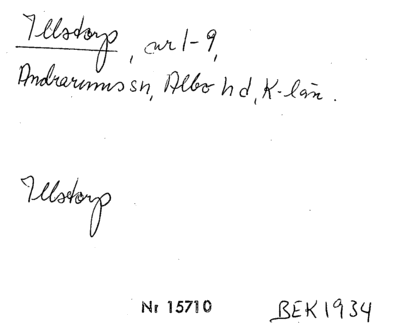 Illstorp, nr 1-9,
Andrarums sn, Albo hd, K-län.
Illstorp
Nr 15710 BEK 1934